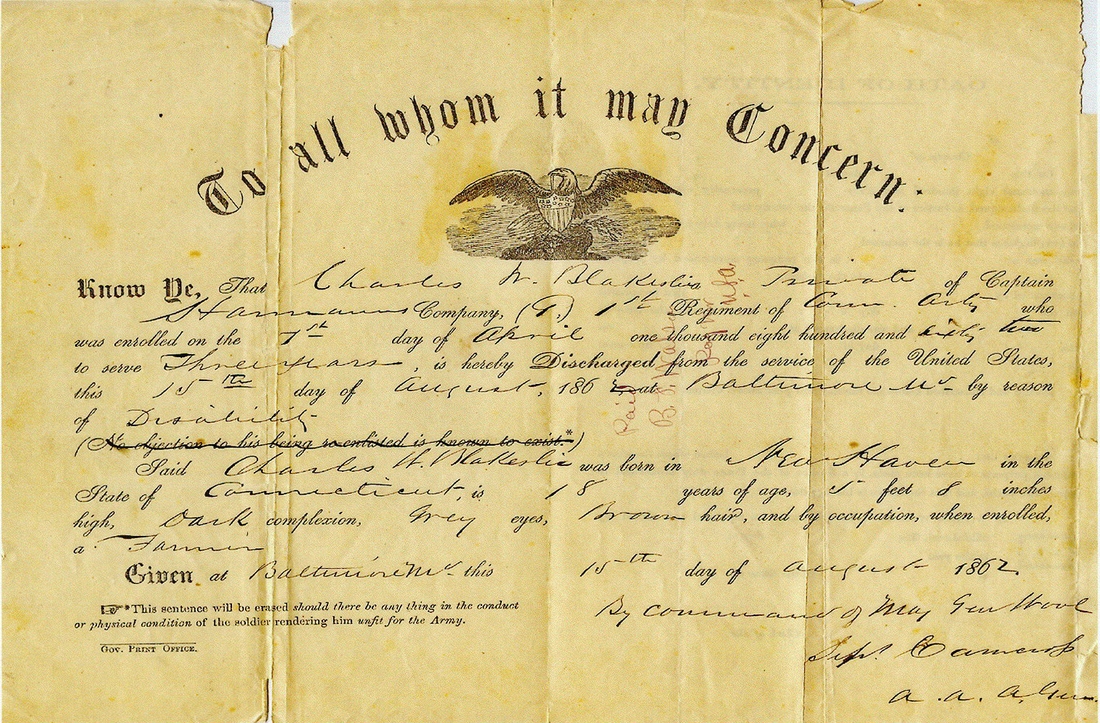 To all whom it may Concern:
Know Ye, That Charles W. Blakeslie Private of Captain
Company, ( ) 1st Regiment of Conn. Arty who
was enrolled on the 7st day of April one thousand eight hundred and sixty two
to serve Three years, is hereby Discharged from the service of the United States,
this 15th day of August, 1862 at Baltimore Md by reason
of Disability
(No objection to his being re-enlisted is known to exist.*)
Said Charles W. Blakeslie was born in New Haven in the
State of Connecticut, is 18 years of age, 5 feet 8 inches
high, Dark complexion, Grey eyes, Brown hair, and by occupation, when enrolled,
a Farmer
Given at Baltimore Md this 15th day of August 1862.
☞*This sentence will be erased should there be any thing in the conduct
or physical condition of the soldier rendering him unfit for the Army.
Gov. Print Office.
By command of Maj Gen Wool
A. A. A. Gen.
Paid